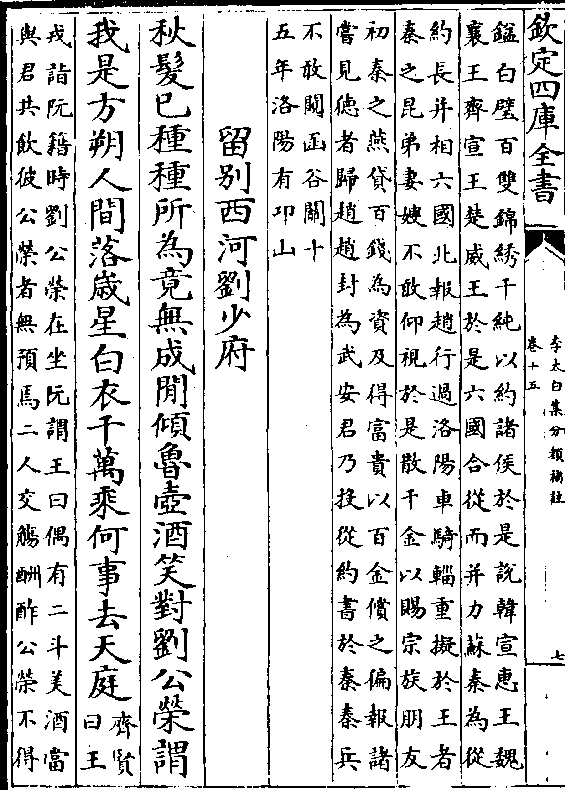 欽定四庫全書
李太白集分類補註
卷十五
七
鎰白璧百雙錦綉千純以約諸侯於是說韓宣惠王魏
襄王齊宣王楚威王於是六國合從而并力蘇秦為從
約長并相六國北報趙行過洛陽車騎輜重擬於王者
秦之昆弟妻嫂不敢仰視於是散千金以賜宗族朋友
初秦之燕貸百錢為資及得富貴以百金償之徧報諸
嘗見徳者歸趙趙封為武安君乃投從約書於秦秦兵
不敢闚函谷關十
五年洛陽有邙山
留别西河劉少府
秋髮已種種所為竟無成閒傾魯壺酒笑對劉公榮謂
我是方朔人間落嵗星白衣千萬乘何事去天庭
齊賢
曰王
戎詣阮籍時劉公榮在坐阮謂王曰偶有二斗美酒當
與君共飲彼公榮者無預焉二人交觴酬酢公榮不得